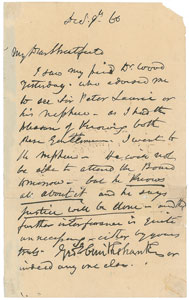 My Dear Shuttleworth
I saw my friend Dr. Wood
yesterday - who advised me
to see Sir Peter Laurie or
his nephew - as I had the
pleasure of knowing both
these Gentlemen. I went to
the nephew - He will not
be able to attend the Board
tomorrow - but he knows
all about it and he says
justice will be done - and
further interference is quite
unnecessary - either by your
or
indeed any one else.